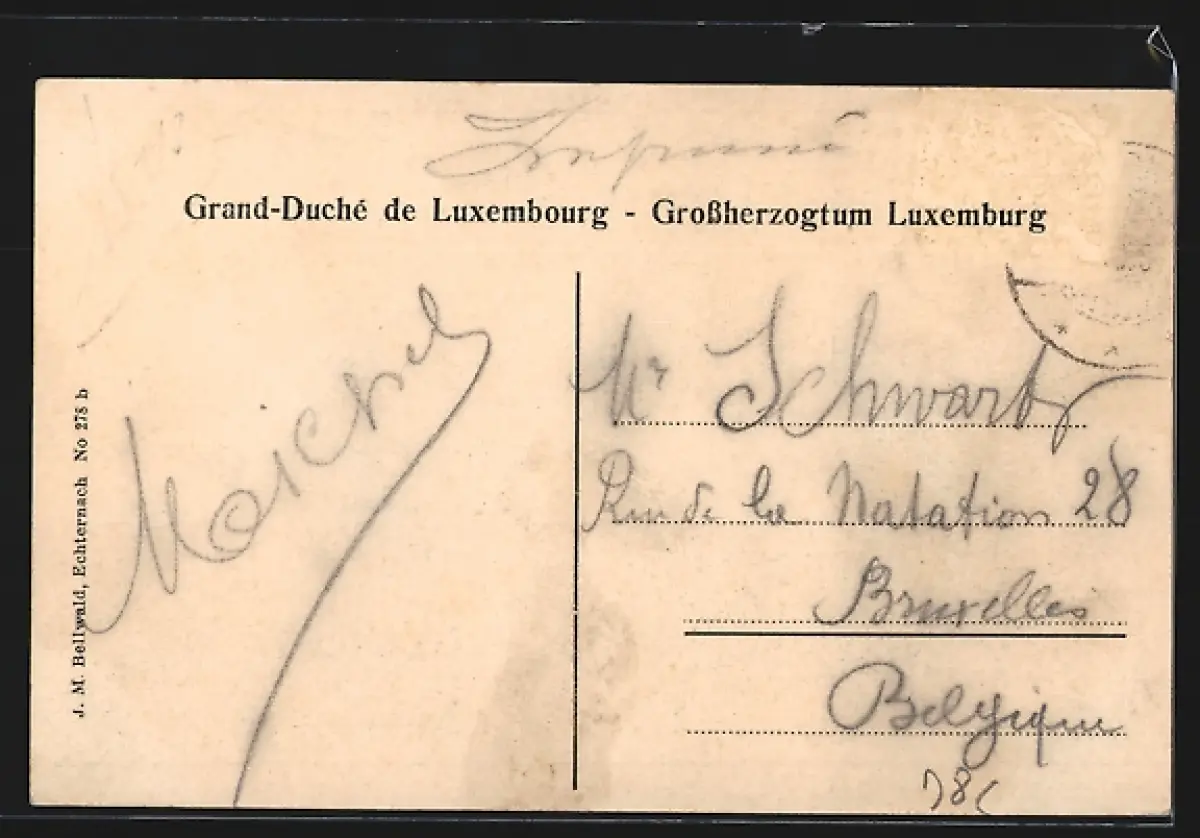 Imprimé
Grand-Duché de Luxembourg - Großherzogtum Luxemburg
J. M. Bellwald, Echternach No 278 b
Mr Schwartz
Rue de la Natation 28
Bruxelles
Belgique